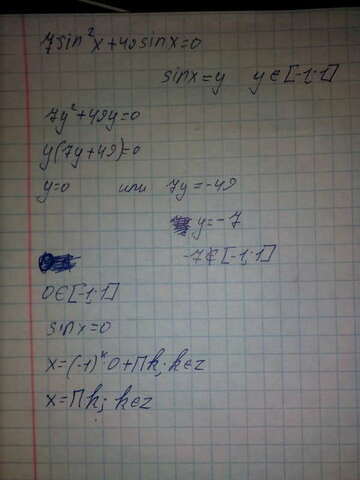 7sin²x+49sinx=0
sinx=y y∈[-1;1]
7y²+49y=0
y(7y+49)=0
y=0 или 7y=-49
y=-7
-7∉[-1;1]
0∈[-1;1]
sinx=0
x=(-1)ᵏ·0+Πk; k∈z
x=Πk; k∈z